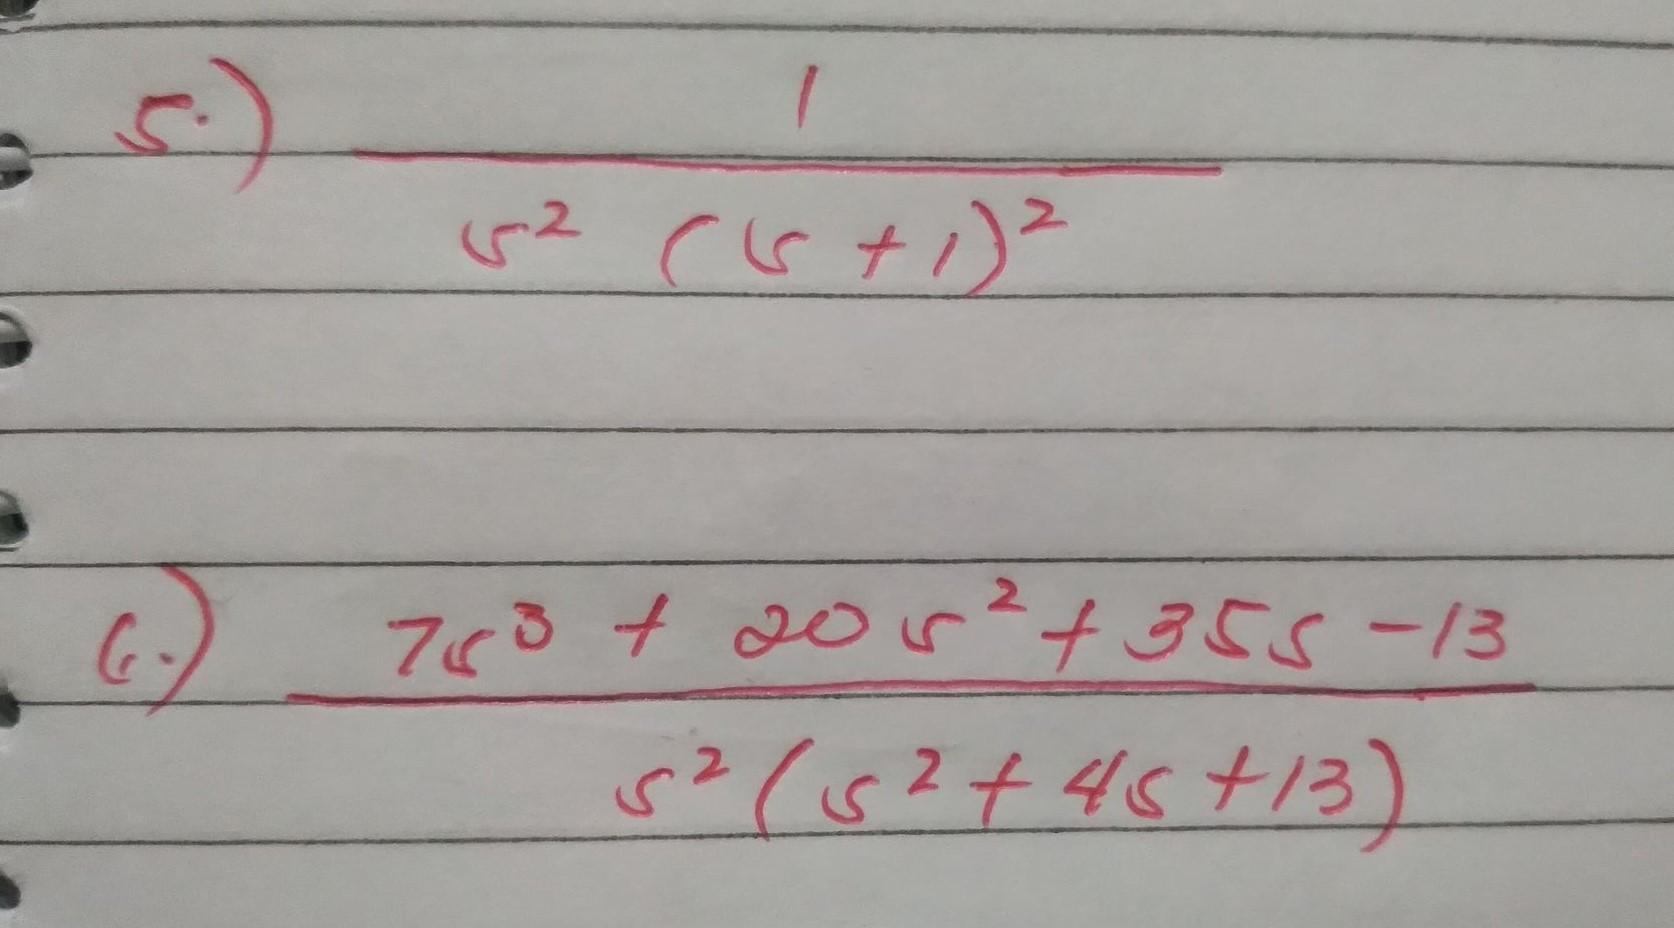 5.) 1
s² (s + 1)²
6.) 7s³ + 20s² + 35s - 13
s² (s² + 4s + 13)